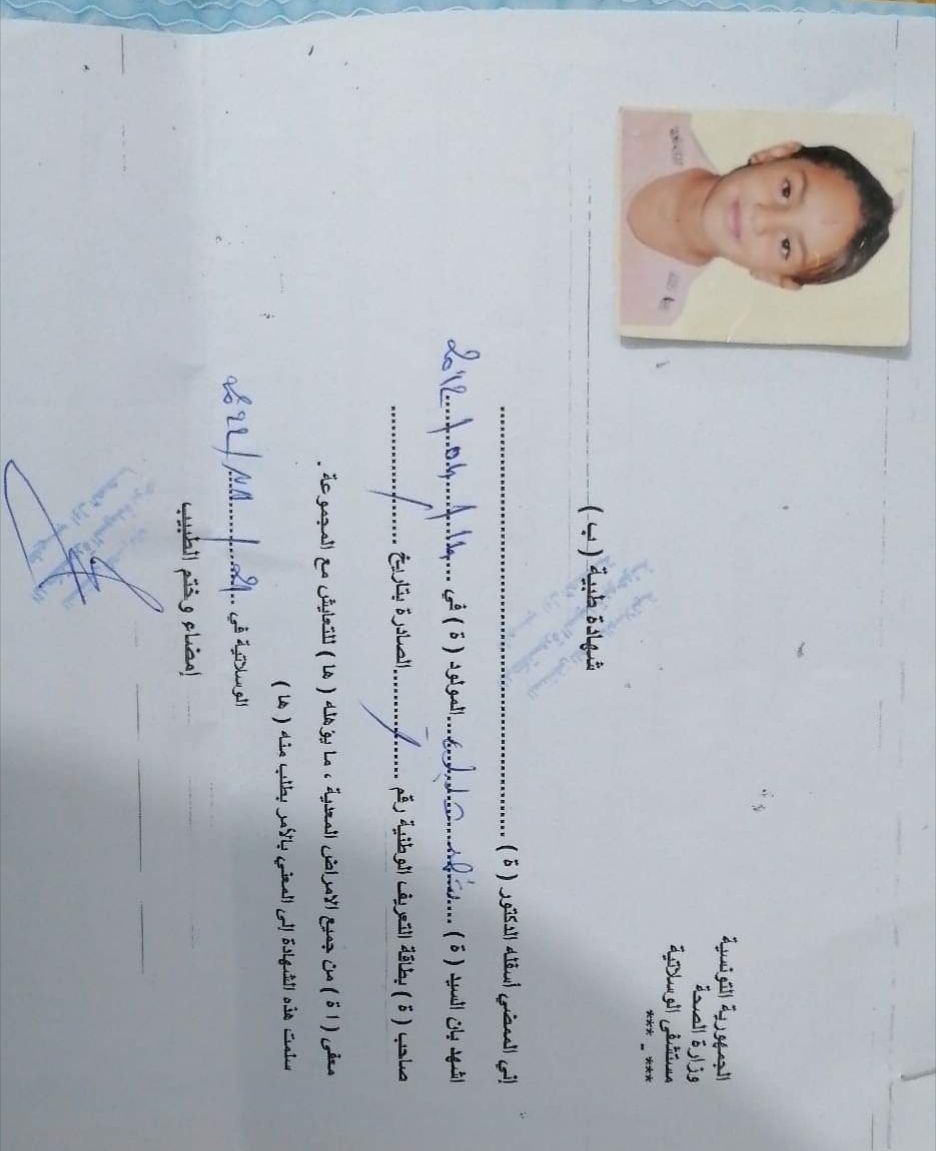 الجمهورية التونسية
وزارة الصحة
مستشفى الوسلاتية
*** - ***
شهادة طبية ( ب )
إني الممضي أسفله الدكتور ( ة ) ........................................
اشهد بان السيد ( ة ) ............ المولود ( ة ) في ............ 2012
صاحب ( ة ) بطاقة التعريف الوطنية رقم ....../...... الصادرة بتاريخ ....../......
معفى ( ا ة ) من جميع الامراض المعدية ، ما يؤهله ( ها ) للتعايش مع المجموعة .
سلمت هذه الشهادة إلى المعني بالأمر بطلب منه ( ها )
الوسلاتية في .. 21 / 11 / 2022
إمضاء و ختم الطبيب